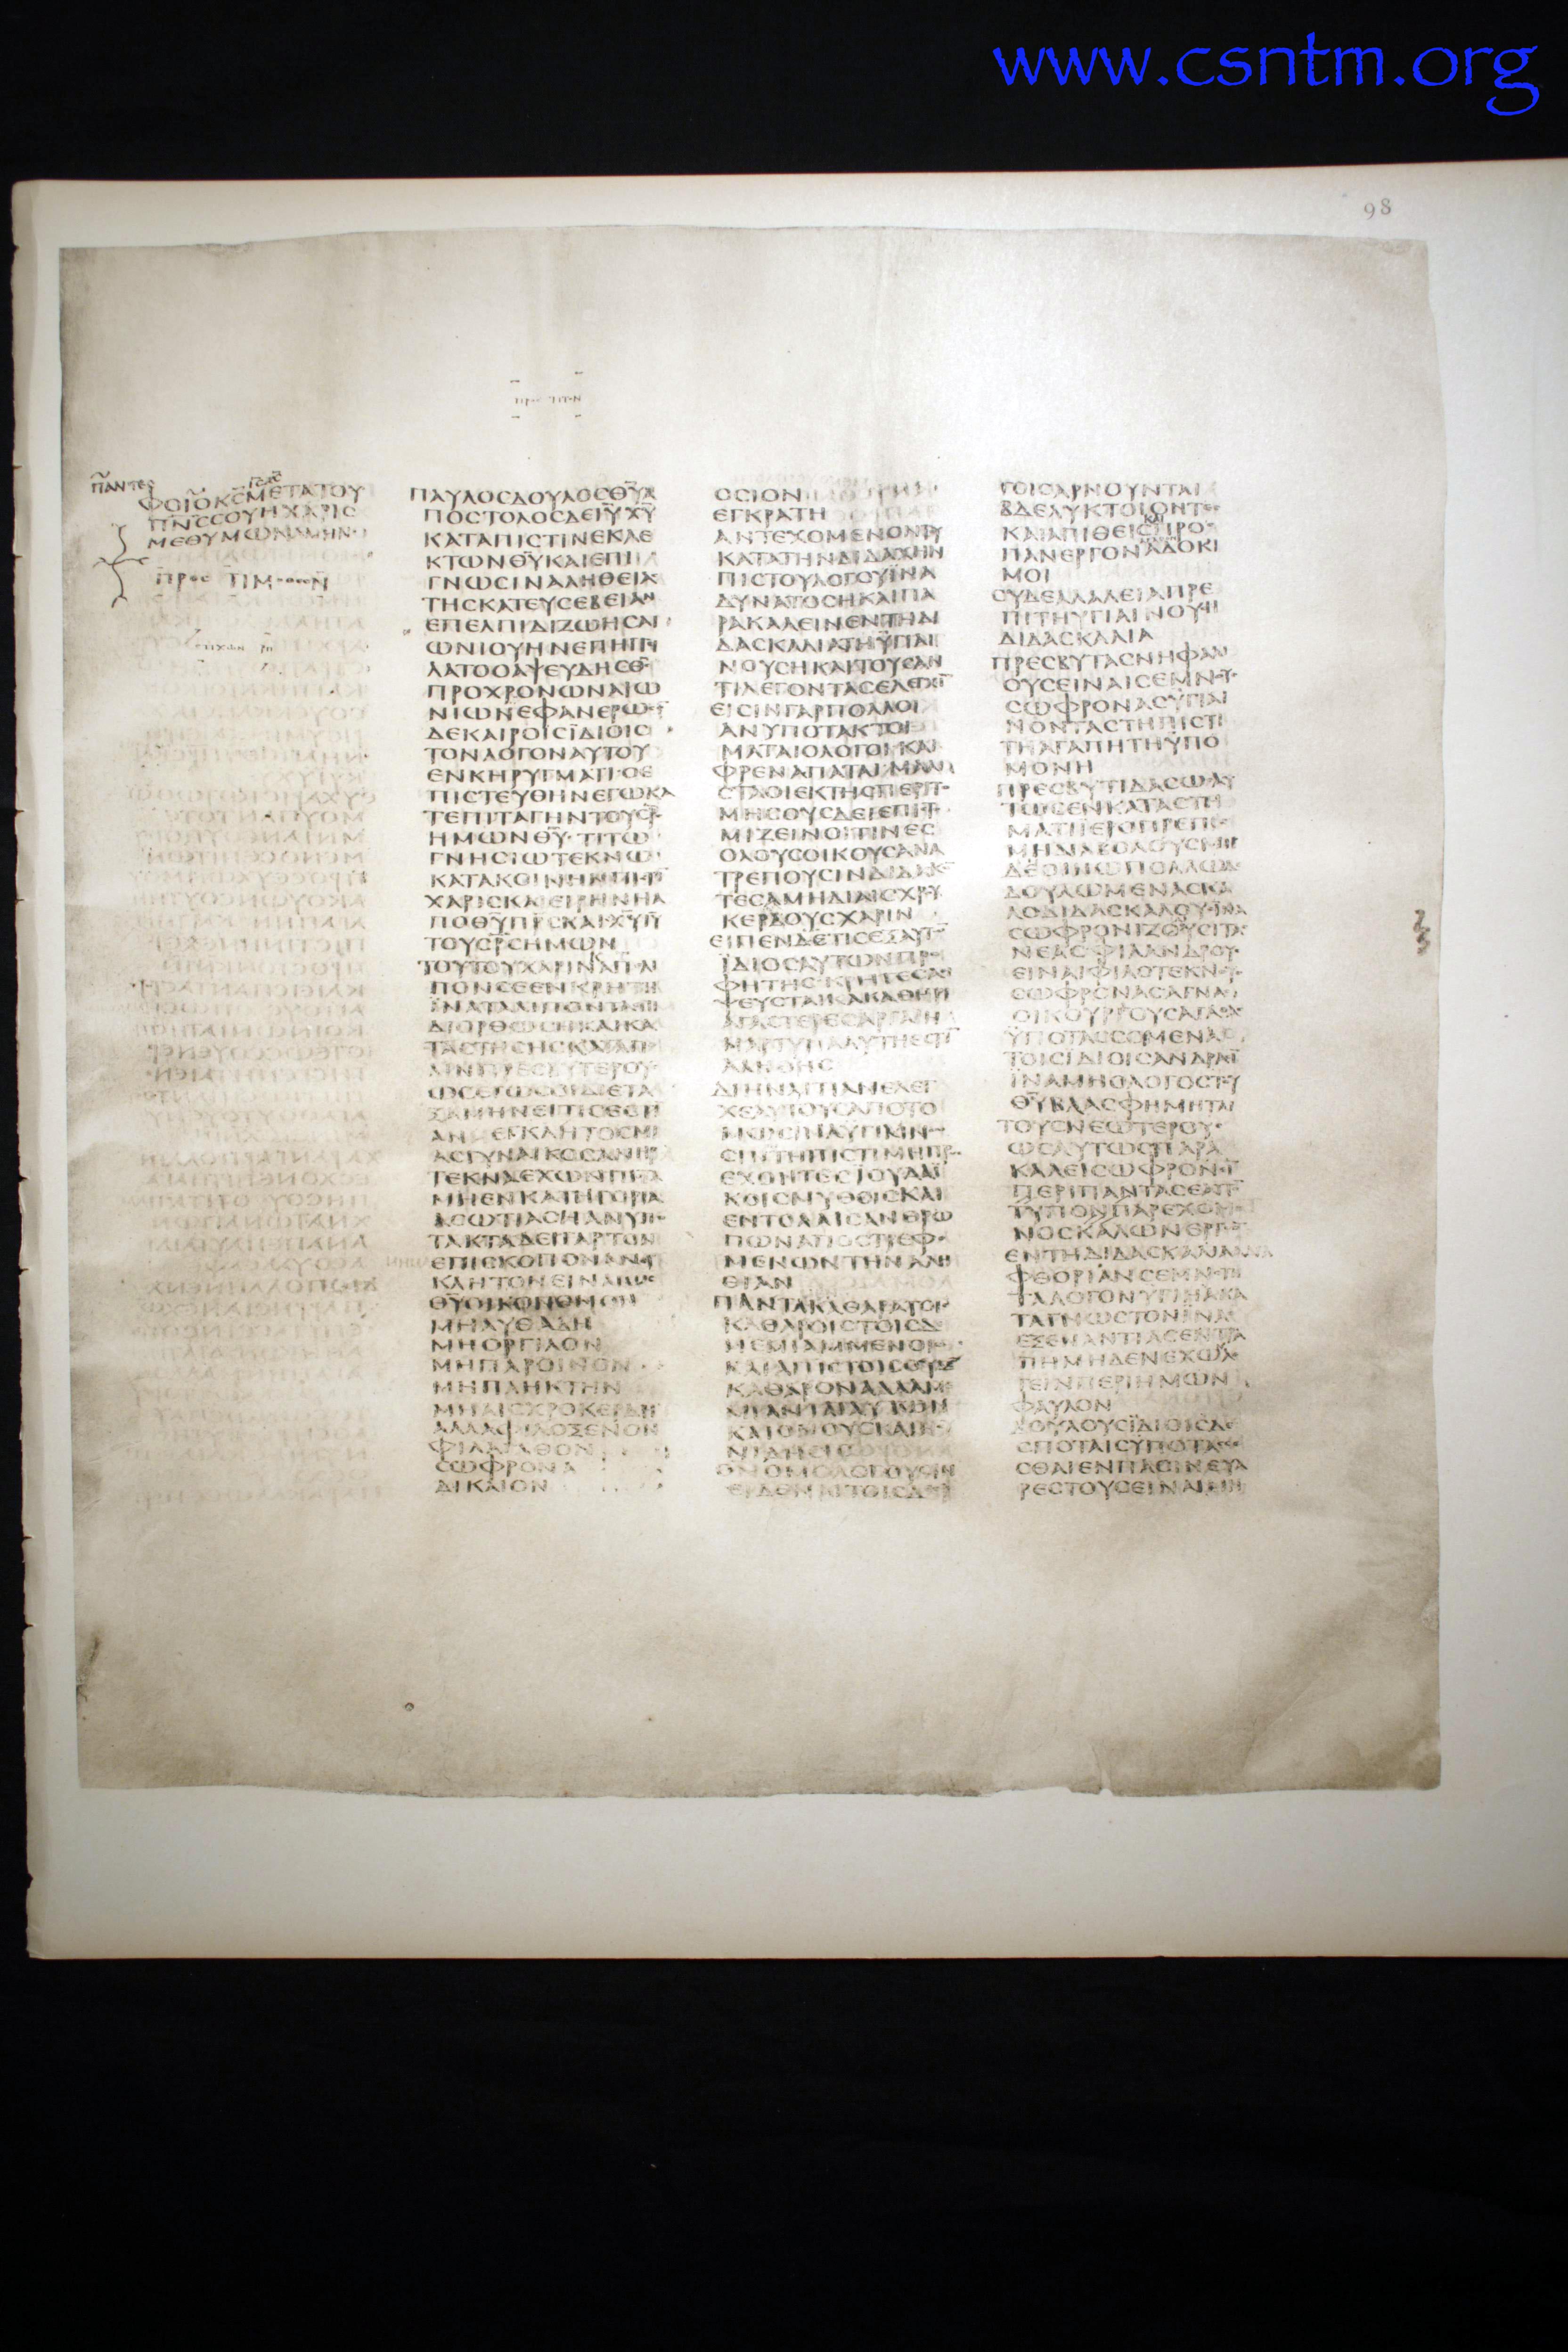 www.csntm.org
98
ΠΡΟC ΤΙΤΟΝ
ΠΑΝΤΕC
ΦΟΙ Ο ΚC ΜΕΤΑ ΤΟΥ
ΠΝC CΟΥ Η ΧΑΡΙC
ΜΕΘ ΥΜΩΝ ΑΜΗΝ
ΠΡΟC ΤΙΜΟΘΕΟΝ
CΤΙΧΩΝ
ΠΑΥΛΟCΔΟΥΛΟCΘΥΑ
ΠΟCΤΟΛΟCΔΕΙΥΧΥ
ΚΑΤΑΠΙCΤΙΝΕΚΛΕ
ΚΤΩΝΘΥΚΑΙΕΠΙ
ΓΝΩCΙΝΑΛΗΘΕΙΑC
ΤΗCΚΑΤΕΥCΕΒΕΙΑΝ
ΕΠΕΛΠΙΔΙΖΩΗCΑΙ
ΩΝΙΟΥΗΝΕΠΗΓΓΙ
ΛΑΤΟΟΑΨΕΥΔΗCΘC
ΠΡΟΧΡΟΝΩΝΑΙΩ
ΝΙΩΝΕΦΑΝΕΡΩCΕ
ΔΕΚΑΙΡΟΙCΪΔΙΟΙC
ΤΟΝΛΟΓΟΝΑΥΤΟΥ
ΕΝΚΗΡΥΓΜΑΤΙΟΕ
ΠΙCΤΕΥΘΗΝΕΓΩΚΑ
ΤΕΠΙΤΑΓΗΝΤΟΥCΡC
ΗΜΩΝΘΥ·ΤΙΤΩ
ΓΝΗCΙΩΤΕΚΝΩ
ΚΑΤΑΚΟΙΝΗΝΠΙCΤΙ
ΧΑΡΙCΚΑΙΕΙΡΗΝΗΑ
ΠΟΘΥΠΡCΚΑΙΧΥΙΥ
ΤΟΥCΡCΗΜΩΝ
ΤΟΥΤΟΥΧΑΡΙΝΑΠΕΛΙ
ΠΟΝCΕΕΝΚΡΗΤΗ
ΪΝΑΤΑΛΙΠΟΝΤΑΕΠΙ
ΔΙΟΡΘΩCΗΚΑΙΚΑ
ΤΑCΤΗCΗCΚΑΤΑΠΟ
ΛΙΝΠΡΕCΒΥΤΕΡΟΥC
ΩCΕΓΩCΟΙΔΙΕΤΑ
ΞΑΜΗΝΕΙΤΙCΕCΤΙ
ΑΝΕΓΚΛΗΤΟCΜΙ
ΑCΓΥΝΑΙΚΟCΑΝΗΡ
ΤΕΚΝΑΕΧΩΝΠΙCΤΑ
ΜΗΕΝΚΑΤΗΓΟΡΙΑ
ΑCΩΤΙΑCΗΑΝΥΠΟ
ΤΑΚΤΑΔΕΙΓΑΡΤΟΝ
ΕΠΙCΚΟΠΟΝΑΝΕΓ
ΚΛΗΤΟΝΕΙΝΑΙΩC
ΘΥΟΙΚΟΝΟΜΟΝ
ΜΗΑΥΘΑΔΗ
ΜΗΟΡΓΙΛΟΝ
ΜΗΠΑΡΟΙΝΟΝ
ΜΗΠΛΗΚΤΗΝ
ΜΗΑΙCΧΡΟΚΕΡΔΗ
ΑΛΛΑΦΙΛΟΞΕΝΟΝ
ΦΙΛΑΓΑΘΟΝ
CΩΦΡΟΝΑ
ΔΙΚΑΙΟΝ
ΟCΙΟΝ
ΕΓΚΡΑΤΗ
ΑΝΤΕΧΟΜΕΝΟΝΤΟΥ
ΚΑΤΑΤΗΝΔΙΔΑΧΗΝ
ΠΙCΤΟΥΛΟΓΟΥΪΝΑ
ΔΥΝΑΤΟCΗΚΑΙΠΑ
ΡΑΚΑΛΕΙΝΕΝΤΗΔΙ
ΔΑCΚΑΛΙΑΤΗΫΓΙΑΙ
ΝΟΥCΗΚΑΙΤΟΥCΑΝ
ΤΙΛΕΓΟΝΤΑCΕΛΕΓΧΙ
ΕΙCΙΝΓΑΡΠΟΛΛΟΙ
ΑΝΥΠΟΤΑΚΤΟΙ
ΜΑΤΑΙΟΛΟΓΟΙΚΑΙ
ΦΡΕΝΑΠΑΤΑΙΜΑΛΙ
CΤΑΟΙΕΚΤΗCΠΕΡΙΤΟ
ΜΗCΟΥCΔΕΙΕΠΙCΤΟ
ΜΙΖΕΙΝΟΙΤΙΝΕC
ΟΛΟΥCΟΙΚΟΥCΑΝΑ
ΤΡΕΠΟΥCΙΝΔΙΔΑCΚΟ
ΤΕCΑΜΗΔΙΑΙCΧΡΟΥ
ΚΕΡΔΟΥCΧΑΡΙΝ
ΕΙΠΕΝΔΕΤΙCΕΞΑΥΤΩ
ΪΔΙΟCΑΥΤΩΝΠΡΟ
ΦΗΤΗCΚΡΗΤΕCΑΙ
ΨΕΥCΤΑΙΚΑΚΑΘΗΡΙ
ΑΓΑCΤΕΡΕCΑΡΓΑΙΗ
ΜΑΡΤΥΡΙΑΑΥΤΗΕCΤΙ
ΑΛΗΘΗC
ΔΙΗΝΑΙΤΙΑΝΕΛΕΓ
ΧΕΑΥΤΟΥCΑΠΟΤΟ
ΜΩCΙΝΑΥΓΙΑΙΝΩ
CΙΝΤΗΠΙCΤΙΜΗΠΡΟ
ΕΧΟΝΤΕCΪΟΥΔΑΪ
ΚΟΙCΜΥΘΟΙCΚΑΙ
ΕΝΤΟΛΑΙCΑΝΘΡΩ
ΠΩΝΑΠΟCΤΡΕΦΟ
ΜΕΝΩΝΤΗΝΑΛΗ
ΘΙΑΝ
ΠΑΝΤΑΚΑΘΑΡΑΤΟΙC
ΚΑΘΑΡΟΙCΤΟΙCΔΕ
ΜΕΜΙΑΜΜΕΝΟΙC
ΚΑΙΑΠΙCΤΟΙCΟΥΔΕ
ΚΑΘΑΡΟΝΑΛΛΑΜΕ
ΜΙΑΝΤΑΙΑΥΤΩΝ
ΚΑΙΟΝΟΥCΚΑΙΗCΥ
ΝΙΔΗCΙC
ΘΝΟΜΟΛΟΓΟΥCΙΝ
ΕΙΔΕΝΑΙΤΟΙCΔΕΕΡ
ΓΟΙCΑΡΝΟΥΝΤΑΙ
ΒΔΕΛΥΚΤΟΙΟΝΤΕC
ΚΑΙΑΠΙΘΕΙCΠΡΟC
ΠΑΝΕΡΓΟΝΑΔΟΚΙ
ΜΟΙ
CΥΔΕΛΑΛΕΙΑΠΡΕ
ΠΙΤΗΥΓΙΑΙΝΟΥCΗ
ΔΙΔΑCΚΑΛΙΑ
ΠΡΕCΒΥΤΑCΝΗΦΑΛΙ
ΟΥCΕΙΝΑΙCΕΜΝΟΥC
CΩΦΡΟΝΑCΥΓΙΑΙ
ΝΟΝΤΑCΤΗΠΙCΤΙ
ΤΗΑΓΑΠΗΤΗΫΠΟ
ΜΟΝΗ
ΠΡΕCΒΥΤΙΔΑCΩCΑΥ
ΤΩCΕΝΚΑΤΑCΤΗ
ΜΑΤΙΪΕΡΟΠΡΕΠΙC
ΜΗΔΙΑΒΟΛΟΥCΜΗ
ΔΕΟΙΝΩΠΟΛΛΩΔΕ
ΔΟΥΛΩΜΕΝΑCΚΑ
ΛΟΔΙΔΑCΚΑΛΟΥCΪΝΑ
CΩΦΡΟΝΙΖΟΥCΙΤΑC
ΝΕΑCΦΙΛΑΝΔΡΟΥC
ΕΙΝΑΙΦΙΛΟΤΕΚΝΟΥC
CΩΦΡΟΝΑCΑΓΝΑC
ΟΙΚΟΥΡΓΟΥCΑΓΑΘΑC
ΫΠΟΤΑCCΟΜΕΝΑC
ΤΟΙCΪΔΙΟΙCΑΝΔΡΑCΙ
ΪΝΑΜΗΟΛΟΓΟCΤΟΥ
ΘΥΒΛΑCΦΗΜΗΤΑΙ
ΤΟΥCΝΕΩΤΕΡΟΥC
ΩCΑΥΤΩCΠΑΡΑ
ΚΑΛΕΙCΩΦΡΟΝΙ
ΠΕΡΙΠΑΝΤΑCΕΑΥΤΟ
ΤΥΠΟΝΠΑΡΕΧΟΜΕ
ΝΟCΚΑΛΩΝΕΡΓΩ
ΕΝΤΗΔΙΔΑCΚΑΛΙΑΑ
ΦΘΟΡΙΑΝCΕΜΝΟΤΗ
ΤΑΛΟΓΟΝΥΓΙΗΑΚΑ
ΤΑΓΝΩCΤΟΝΪΝΑ
ΕΞΕΝΑΝΤΙΑCΕΝΤΡΑ
ΠΗΜΗΔΕΝΕΧΩΛΕ
ΓΕΙΝΠΕΡΙΗΜΩΝ
ΦΑΥΛΟΝ
ΔΟΥΛΟΥCΪΔΙΟΙCΔΕ
CΠΟΤΑΙCΫΠΟΤΑC
CΘΑΙΕΝΠΑCΙΝΕΥΑ
ΡΕCΤΟΥCΕΙΝΑΙΜΗ